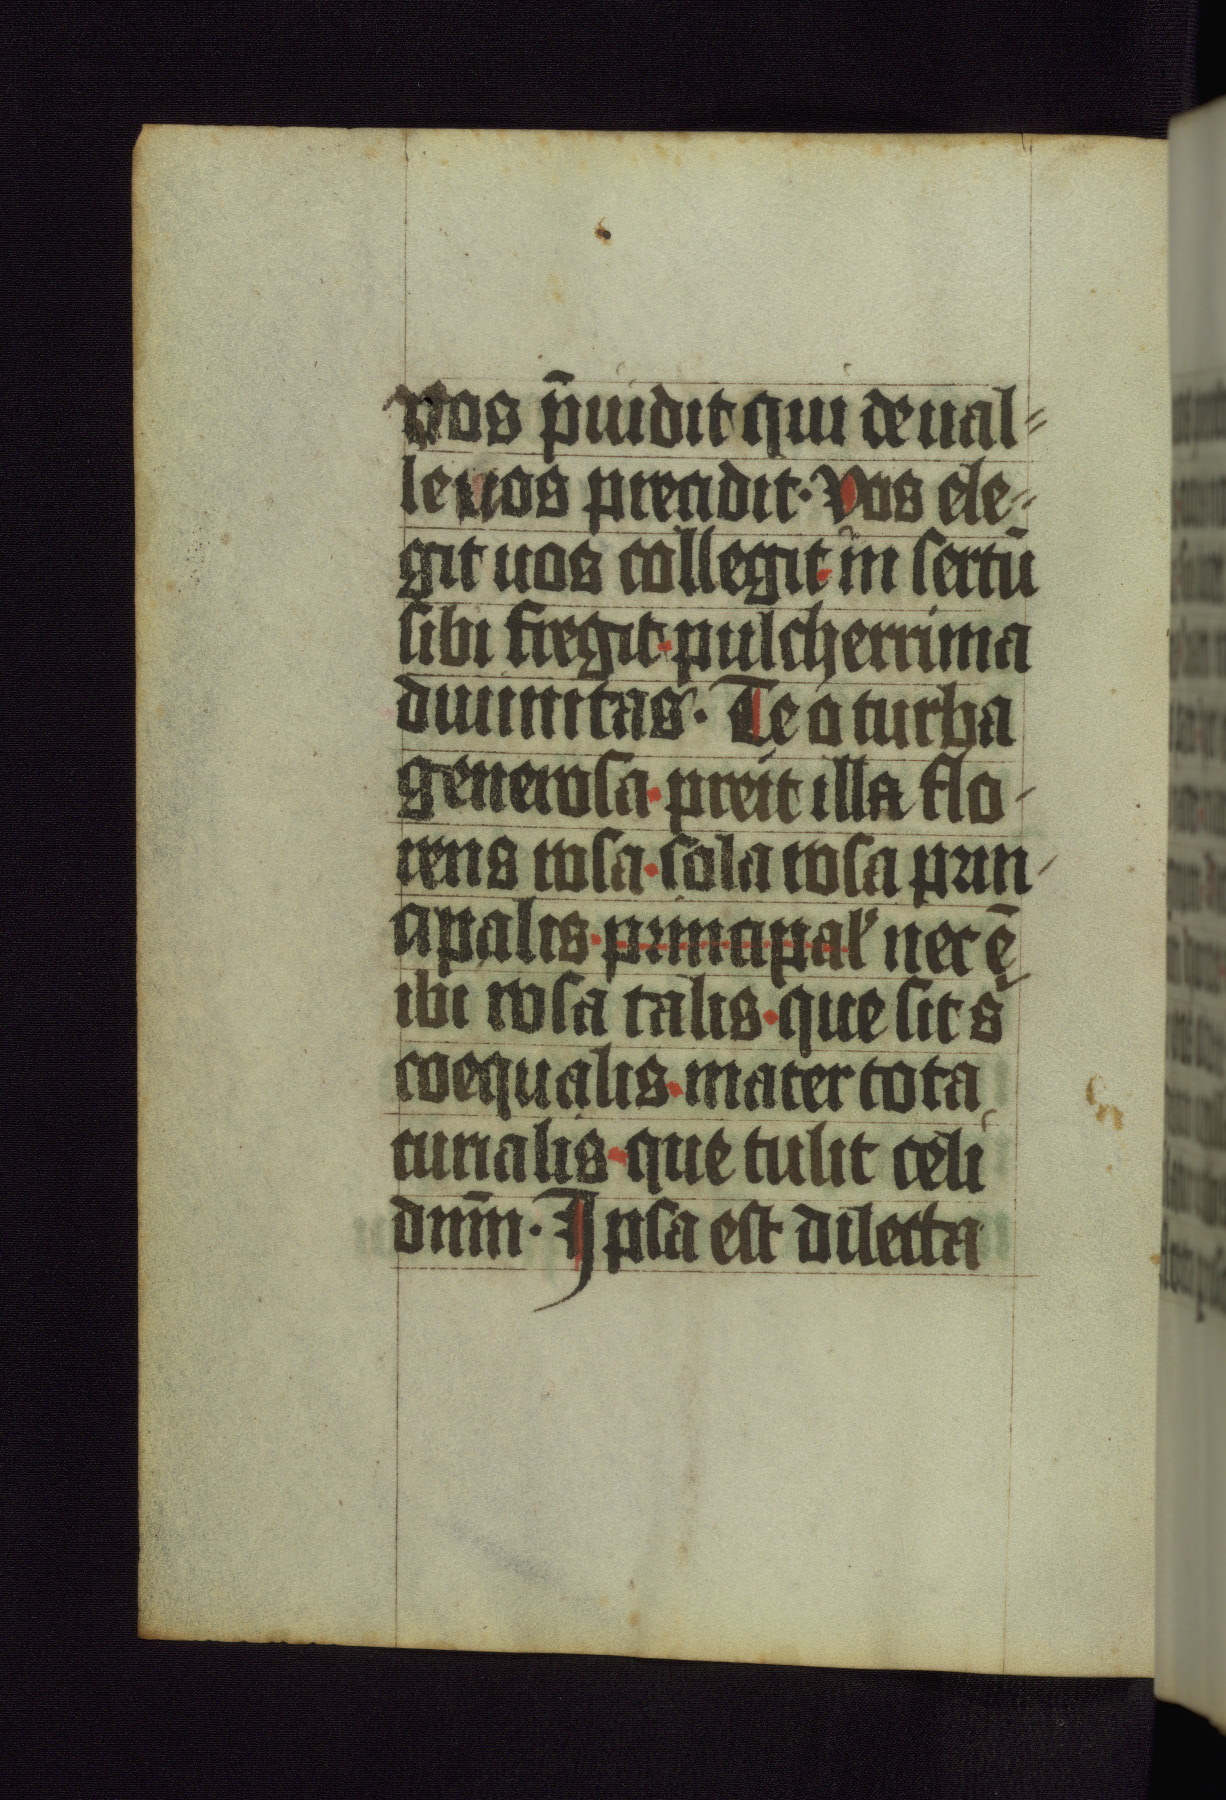 vos p̄uidit qui de ual⸗
le uos precidit · Vos ele⸗
git uos collegit · in sertū
sibi fregit · pulcherrima
diuinitas · Te o turba
generosa · preit illa flo-
rens rosa · sola rosa prin-
cipalis · principal' nec ē
ibi rosa talis · que sit s
coequalis · mater tota
curialis · que tulit celi
dnm̄ · Ipsa est dilecta